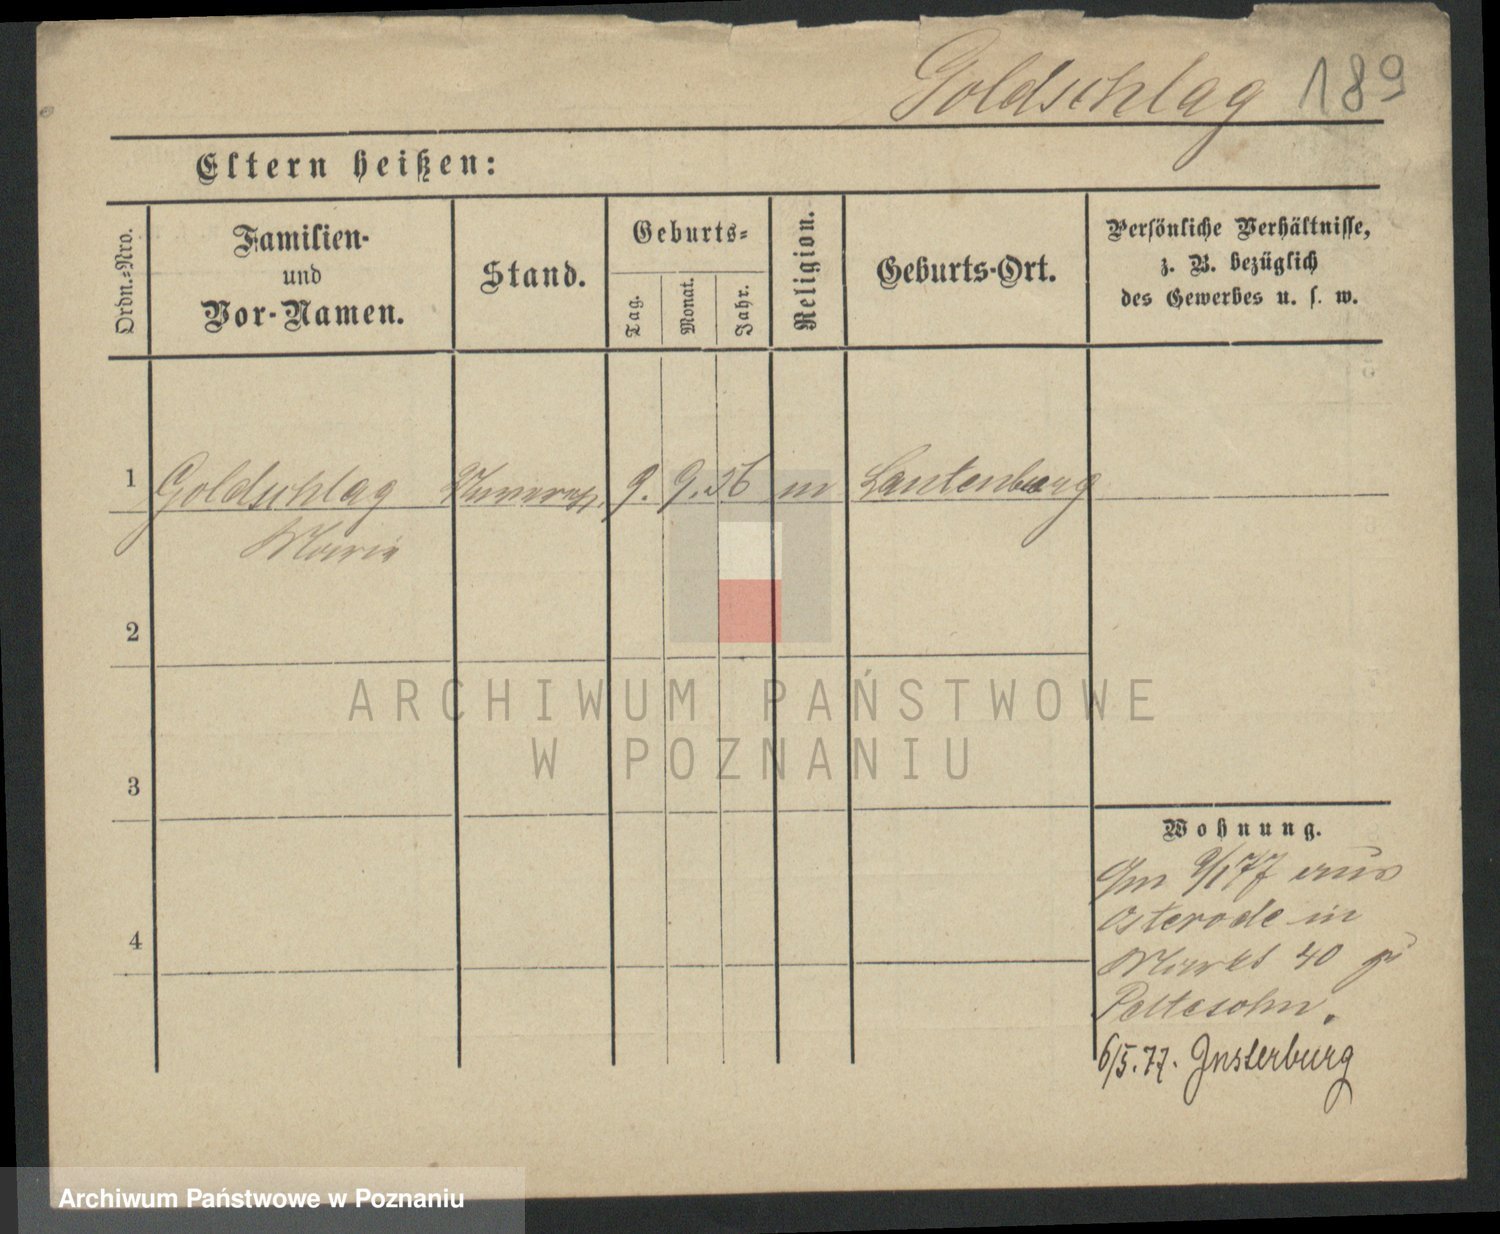 Goldschlag 189
Eltern heißen:
Ordn.-Nro.
Familien-
und
Vor-Namen.
Stand.
Geburts-
Tag.
Monat.
Jahr.
Religion.
Geburts-Ort.
Persönliche Verhältnisse,
z. B. bezüglich
des Gewerbes u. s. w.
1 Goldschlag 9. 9. 56 m Lautenburg
Marie
2
3
4
Wohnung.
Am 9/1 77 aus
Osterode in
Markt 40
Peltesohn.
6/5. 77. Insterburg
ARCHIWUM PAŃSTWOWE
W POZNANIU
Archiwum Państwowe w Poznaniu